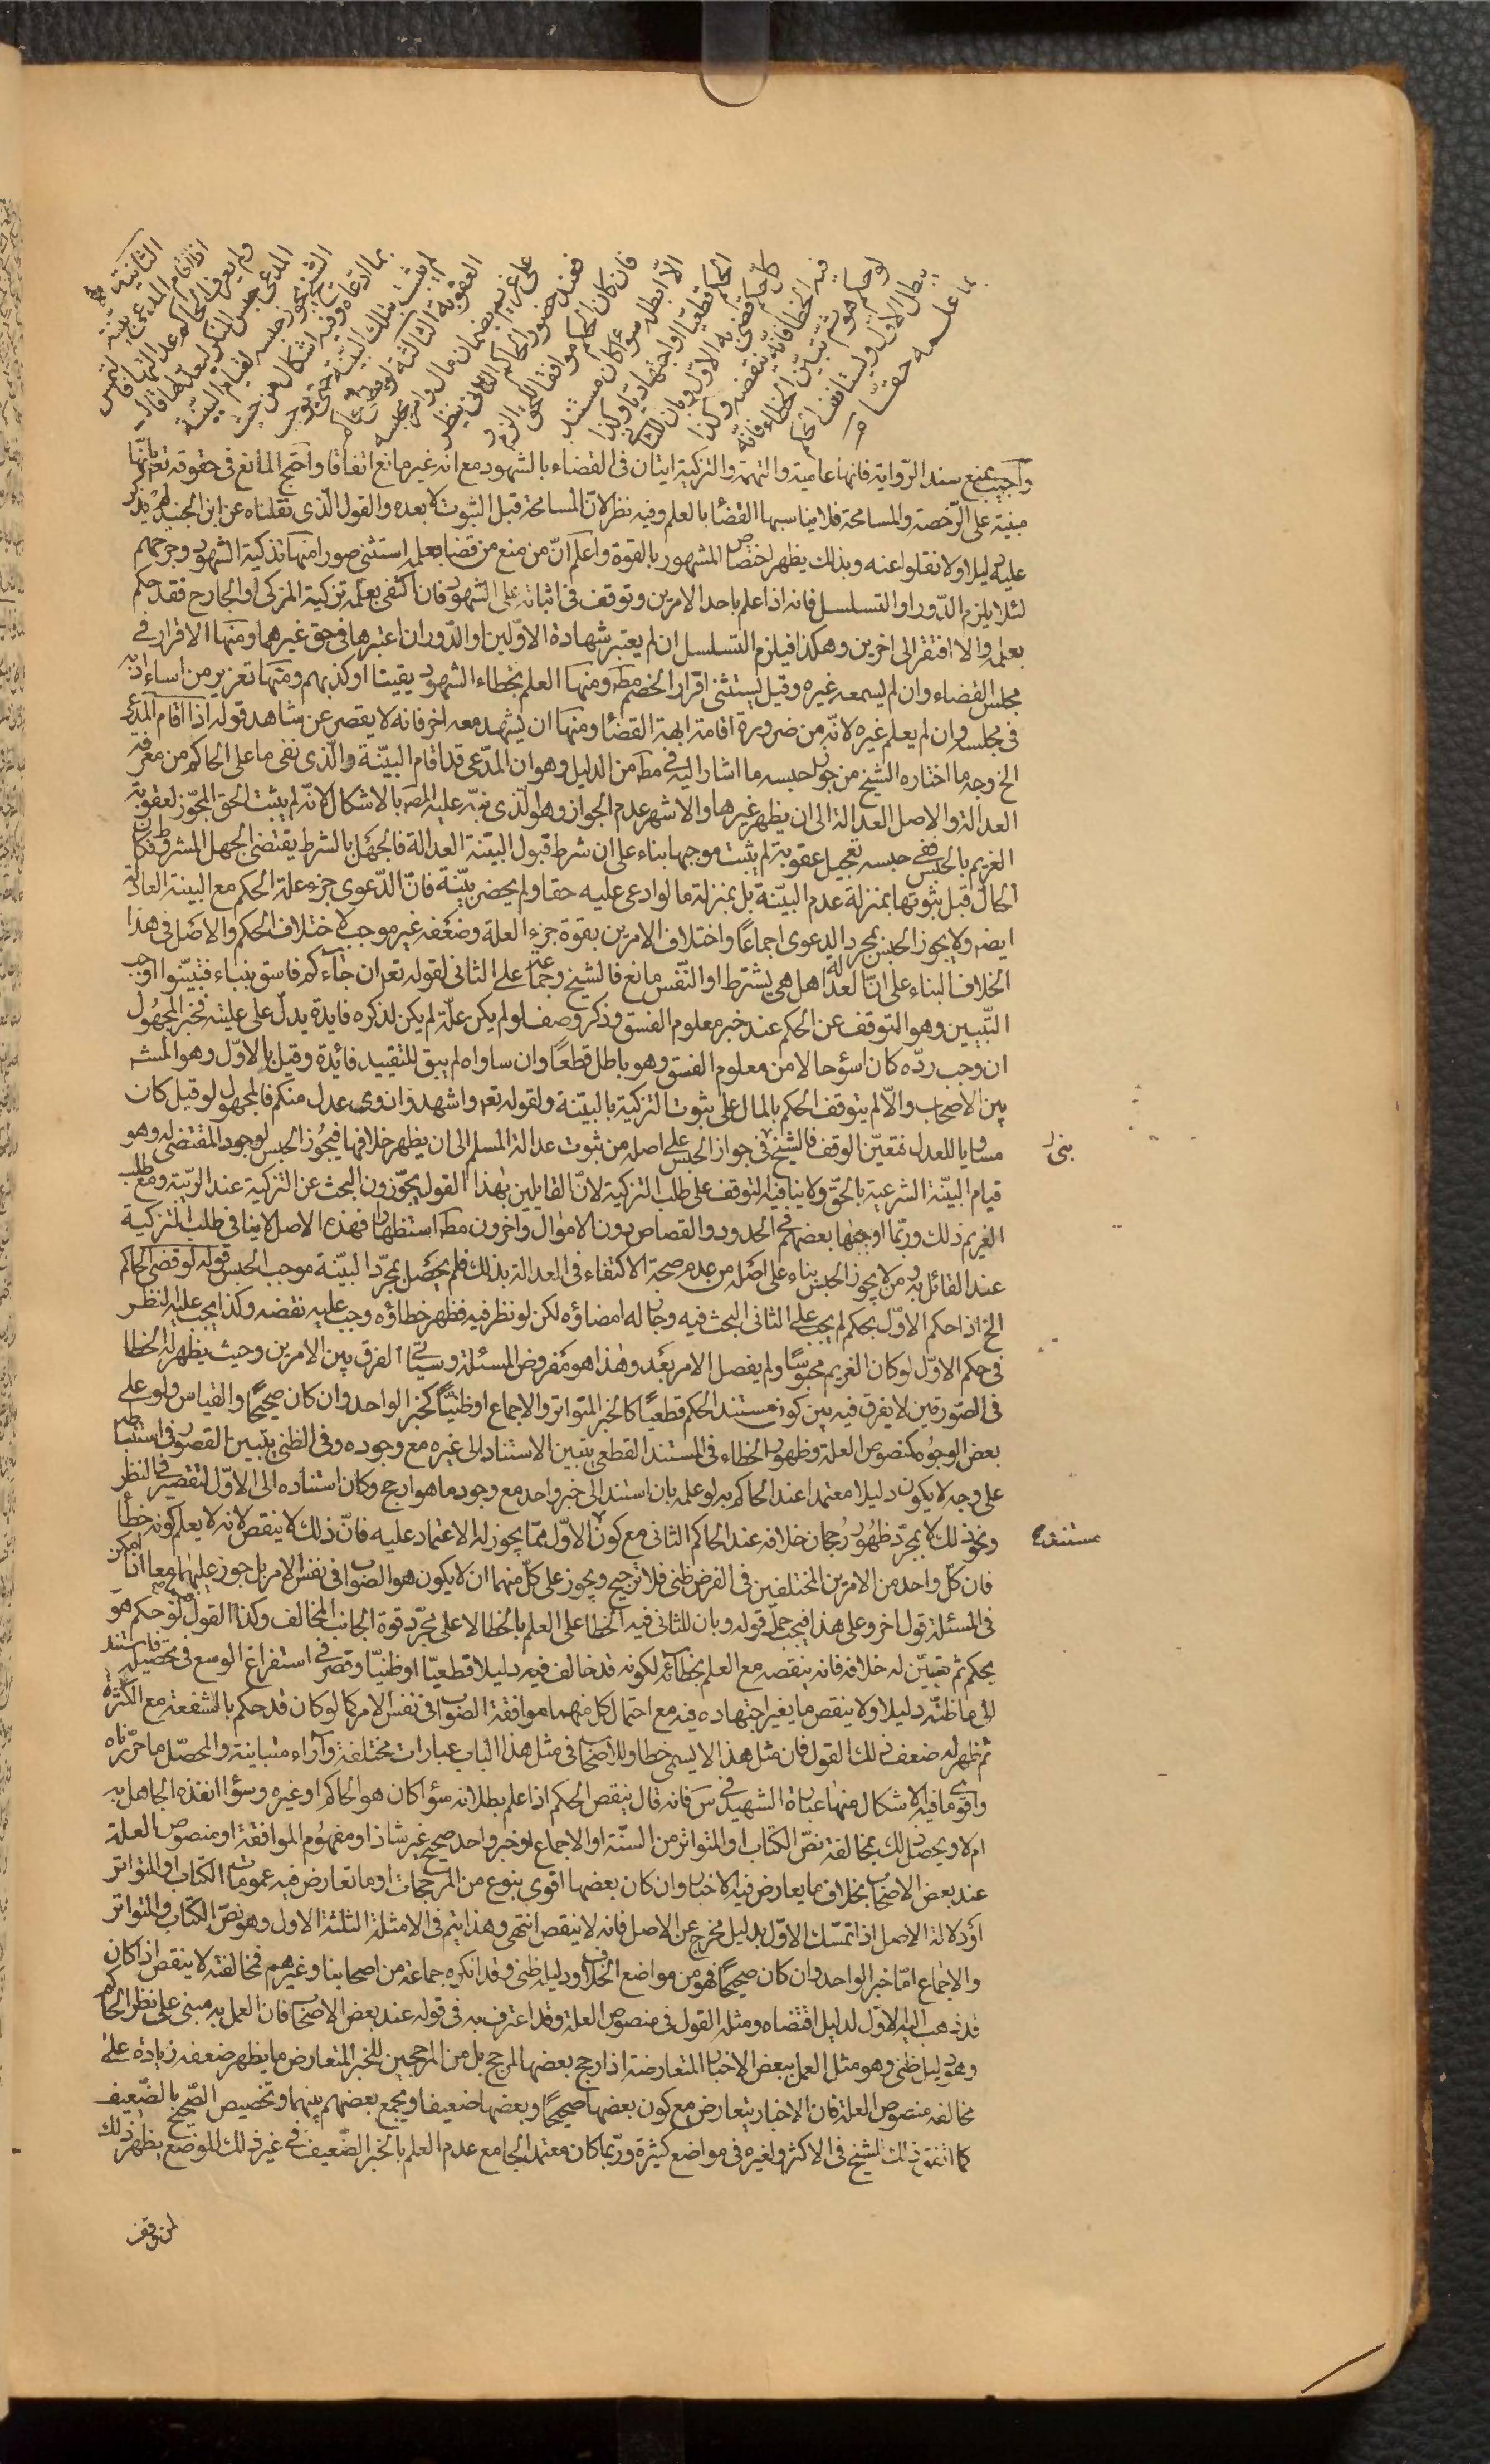 الثانية
اذا اقام المدعى بينة
ولم يعرف الحاكم عدالتهما فالتمس
المدعى حبس المنكر ليعدلهما قال
الشيخ يجوز حبسه لقيام البينة
بما ادعاه وفيه اشكال من حيث
لم يثبت بتلك البينة حق يوجب
العقوبة الثالثة لو قضى الحاكم
على غريم بضمان مال وامر بحبسه
فعند حضور الحاكم الثانى ينظر
فان كان الحكم موافقا للحق الزم و
الا ابطله سواء كان مستند
الحكم قطعيا او اجتهاديا وكذا
كل حكم قضى به الاول وبان للثانى
فيه الخطا فانه ينقضه وكذا
لو حكم هو ثم تبين الخطاء فانه
يبطل الاول ويستانف الحكم
بما علمه حقا
واجيب بمنع سند الرواية فانها عامية والتهمة والتزكية ايتان فى القضاء بالشهود مع انه غير مانع اتفاقا واحتج المانع فى حقوقه تعالى بانها
مبنية على الرخصة والمسامحة فلا يناسبها القضا بالعلم وفيه نظر لان المسامحة قبل الثبوت لا بعده والقول الذى نقلناه عن ابن الجنيد لم يذكر
عليه دليلا ولا نقلوا عنه وبذلك يظهر اختصاص المشهور بالقوة واعلم ان من منع من قضائه بعلمه استثنى صورا منها تزكية الشهود وجرحهم
لئلا يلزم الدور او التسلسل فانه اذا علم باحد الامرين وتوقف فى اثباته على الشهود فان اكتفى بعلمه بتزكية المزكى او الجارح فقد حكم
بعلمه والا افتقر الى اخرين وهكذا فيلزم التسلسل ان لم يعتبر شهادة الاولين او الدور ان اعتبرها فى حق غيرهما ومنها الاقرار فى
مجلس القضاء وان لم يسمعه غيره وقيل يستثنى اقرار الخصم مطه ومنها العلم بخطاء الشهود يقينا او كذبهم ومنها تعزير من اساء ادبه
فى مجلسه وان لم يعلم غيره لانه من ضرورة اقامة ابهة القضا ومنها ان يشهد معه اخر فانه لا يقصر عن شاهد قوله اذا اقام المدعى
الخ وجه ما اختاره الشيخ من جواز حبسه ما اشار اليه فى مطه من الدليل وهو ان المدعى قد اقام البينة والذى بقى ما على الحاكم من معرفة
العدالة والاصل العدالة الى ان يظهر غيرها والاشهر عدم الجواز وهو الذى نبه عليه المص بالاشكال لانه لم يثبت الحق المجوز لعقوبة
الغريم بالحبس ففى حبسه تعجيل عقوبة لم يثبت موجبها بناء على ان شرط قبول البينة العدالة فالجهل بالشرط يقتضى الجهل بالمشروط فكان
الحال قبل ثبوتها بمنزلة عدم البينة بل بمنزلة ما لو ادعى عليه حقا ولم يحضر بينة فان الدعوى جزء علة الحكم مع البينة العادلة
ايضه ولا يجوز الحبس بمجرد الدعوى اجماعا واختلاف الامرين بقوة جزء العلة وضعفه غير موجب لاختلاف الحكم والاصل فى هذا
الخلاف البناء على ان العدالة هل هى يشترط او الفسق مانع فالشيخ وجماعة على الثانى لقوله تعه ان جاءكم فاسق بنباء فتبينوا اوجب
التبيين وهو التوقف عن الحكم عند خبر معلوم الفسق وذكر وصف لو لم يكن علة لم يكن لذكره فايدة يدل على عليته فخبر المجهول
ان وجب رده كان اسوء حالا من معلوم الفسق وهو باطل قطعا وان ساواه لم يبق للتقييد فائدة وقيل بالاول وهو المشه
بين الاصحاب والا لم يتوقف الحكم بالمال على ثبوت التزكية بالبينة ولقوله تعه واشهدوا ذوى عدل منكم فالمجهول لو قبل كان
مساويا للعدل فتعين الوقف فالشيخ بنى فى جواز الحبس على اصله من ثبوت عدالة المسلم الى ان يظهر خلافها فيجوز الحبس لوجود المقتضى له وهو
قيام البينة الشرعية بالحق ولا ينافيه التوقف على طلب التزكية لان القايلين بهذا القول يجوزون البحث عن التزكية عند الريبة ومع طلب
الغريم ذلك وربما اوجبها بعضهم فى الحدود والقصاص دون الاموال واخرون مطه استظهارا فهذه الاصل لا ينافى طلب التزكية
عند القائل به ومن لا يجوز الحبس بناء على اصله من عدم صحة الاكتفاء فى العدالة بذلك فلم يحصل بمجرد البينة موجب الحبس قوله لو قضى الحاكم
الخ اذا حكم الاول بحكم لم يجب على الثانى البحث فيه وجاز له امضاؤه لكن لو نظر فيه فظهر خطاؤه وجب عليه نقضه وكذا يجب عليه النظر
فى حكم الاول لو كان الغريم محبوسا ولم يفصل الامر بعد وهذا هو مفروض المسئلة وسياتى الفرق بين الامرين وحيث يظهر له الخطا
فى الصورتين لا يفرق فيه بين كون مستند الحكم قطعيا كالخبر المتواتر والاجماع او ظنيا كخبر الواحد وان كان صحيحا والقياس ولو على
بعض الوجوه كمنصوص العلة وظهور الخطاء فى المستند القطعى بتبين الاستناد الى غيره مع وجوده وفى الظنى بتبين القصور فى استنباطه
على وجه لا يكون دليلا معتمدا عند الحاكم به لو علمه بان استند الى خبر واحد مع وجود ما هو ارجح وكان استناده الى الاول لتقصير فى النظر
ونحو ذلك لا بمجرد ظهور رجحان خلافه عند الحاكم الثانى مع كون مستنده الاول مما يجوز له الاعتماد عليه فان ذلك لا ينقض لانه لا يعلم كونه خطأ
فان كل واحد من الامرين المختلفين فى الفرض ظنى فلا ترجيح ويجوز على كل منهما ان لا يكون هو الصواب فى نفس الامر بل جوز عليهما معا ان امكن
فى المسئلة قول اخر وعلى هذا فيجب حمل قوله وبان للثانى فيه الخطا على العلم بالخطا لا على مجرد قوة الجانب المخالف وكذا القول لو حكم هو
بحكم ثم تبين له خلافه فانه ينقضه مع العلم بخطائه لكونه قد خالف فيه دليلا قطعيا او ظنيا وقصر فى استفراغ الوسع فى تحصيله فاستند
الى ما ظنه دليلا ولا ينقض ما يغير اجتهاده فيه مع احتمال كل منهما موافقة الصواب فى نفس الامر كما لو كان قد حكم بالشفعة مع الكثرة
ثم ظهر له ضعف ذلك القول فان مثل هذا لا يسمى خطا وللاصحاب فى مثل هذا الباب عبارات مختلفة وآراء متباينة والمحصل ما حررناه
واقوى ما فيه الاشكال منها عبارة الشهيد فى س فانه قال ينقض الحكم اذا علم بطلانه سواء كان هو الحاكم او غيره وسواء انفذه الجاهل به
ام لا ويحصل ذلك بمخالفة نص الكتاب او المتواتر من السنة او الاجماع او خبر واحد صحيح غير شاذ او مفهوم الموافقة او منصوص العلة
عند بعض الاصحاب بخلاف ما يعارض فيه الاخبار وان كان بعضها اقوى بنوع من المرجحات او ما تعارض فيه عمومات الكتاب او المتواتر
او دلالة الاصل اذا تمسك الاول بدليل مخرج عن الاصل فانه لا ينقض انتهى وهذا يتم فى الامثلة الثلثة الاول وهو نص الكتاب والمتواتر
والاجماع اما خبر الواحد وان كان صحيحا فهو من مواضع الخلاف ودليله ظنى وقد انكره جماعة من اصحابنا وغيرهم فمخالفته لا ينقض اذا كان
قد ذهب اليه الاول لدليل اقتضاه ومثله القول فى منصوص العلة وقد اعترف به فى قوله عند بعض الاصحاب فان العمل به مبنى على نظر الحاكم
وهو دليل ظنى وهو مثل العمل ببعض الاخبار المتعارضة اذا رجح بعضها المرجح بل من المرجحين للخبر المتعارض ما يظهر ضعفه زيادة على
مخالفه منصوص العلة فان الاخبار يتعارض مع كون بعضها صحيحا وبعضها ضعيفا ويجمع بعضهم بينهما وتخصيص الصحيح بالضعيف
كما اتفق ذلك للشيخ فى الاكثر ولغيره فى مواضع كثيرة وربما كان معتمد الجامع عدم العلم بالخبر الضعيف فى غير ذلك الموضع يظهر ذلك
لمن وقف